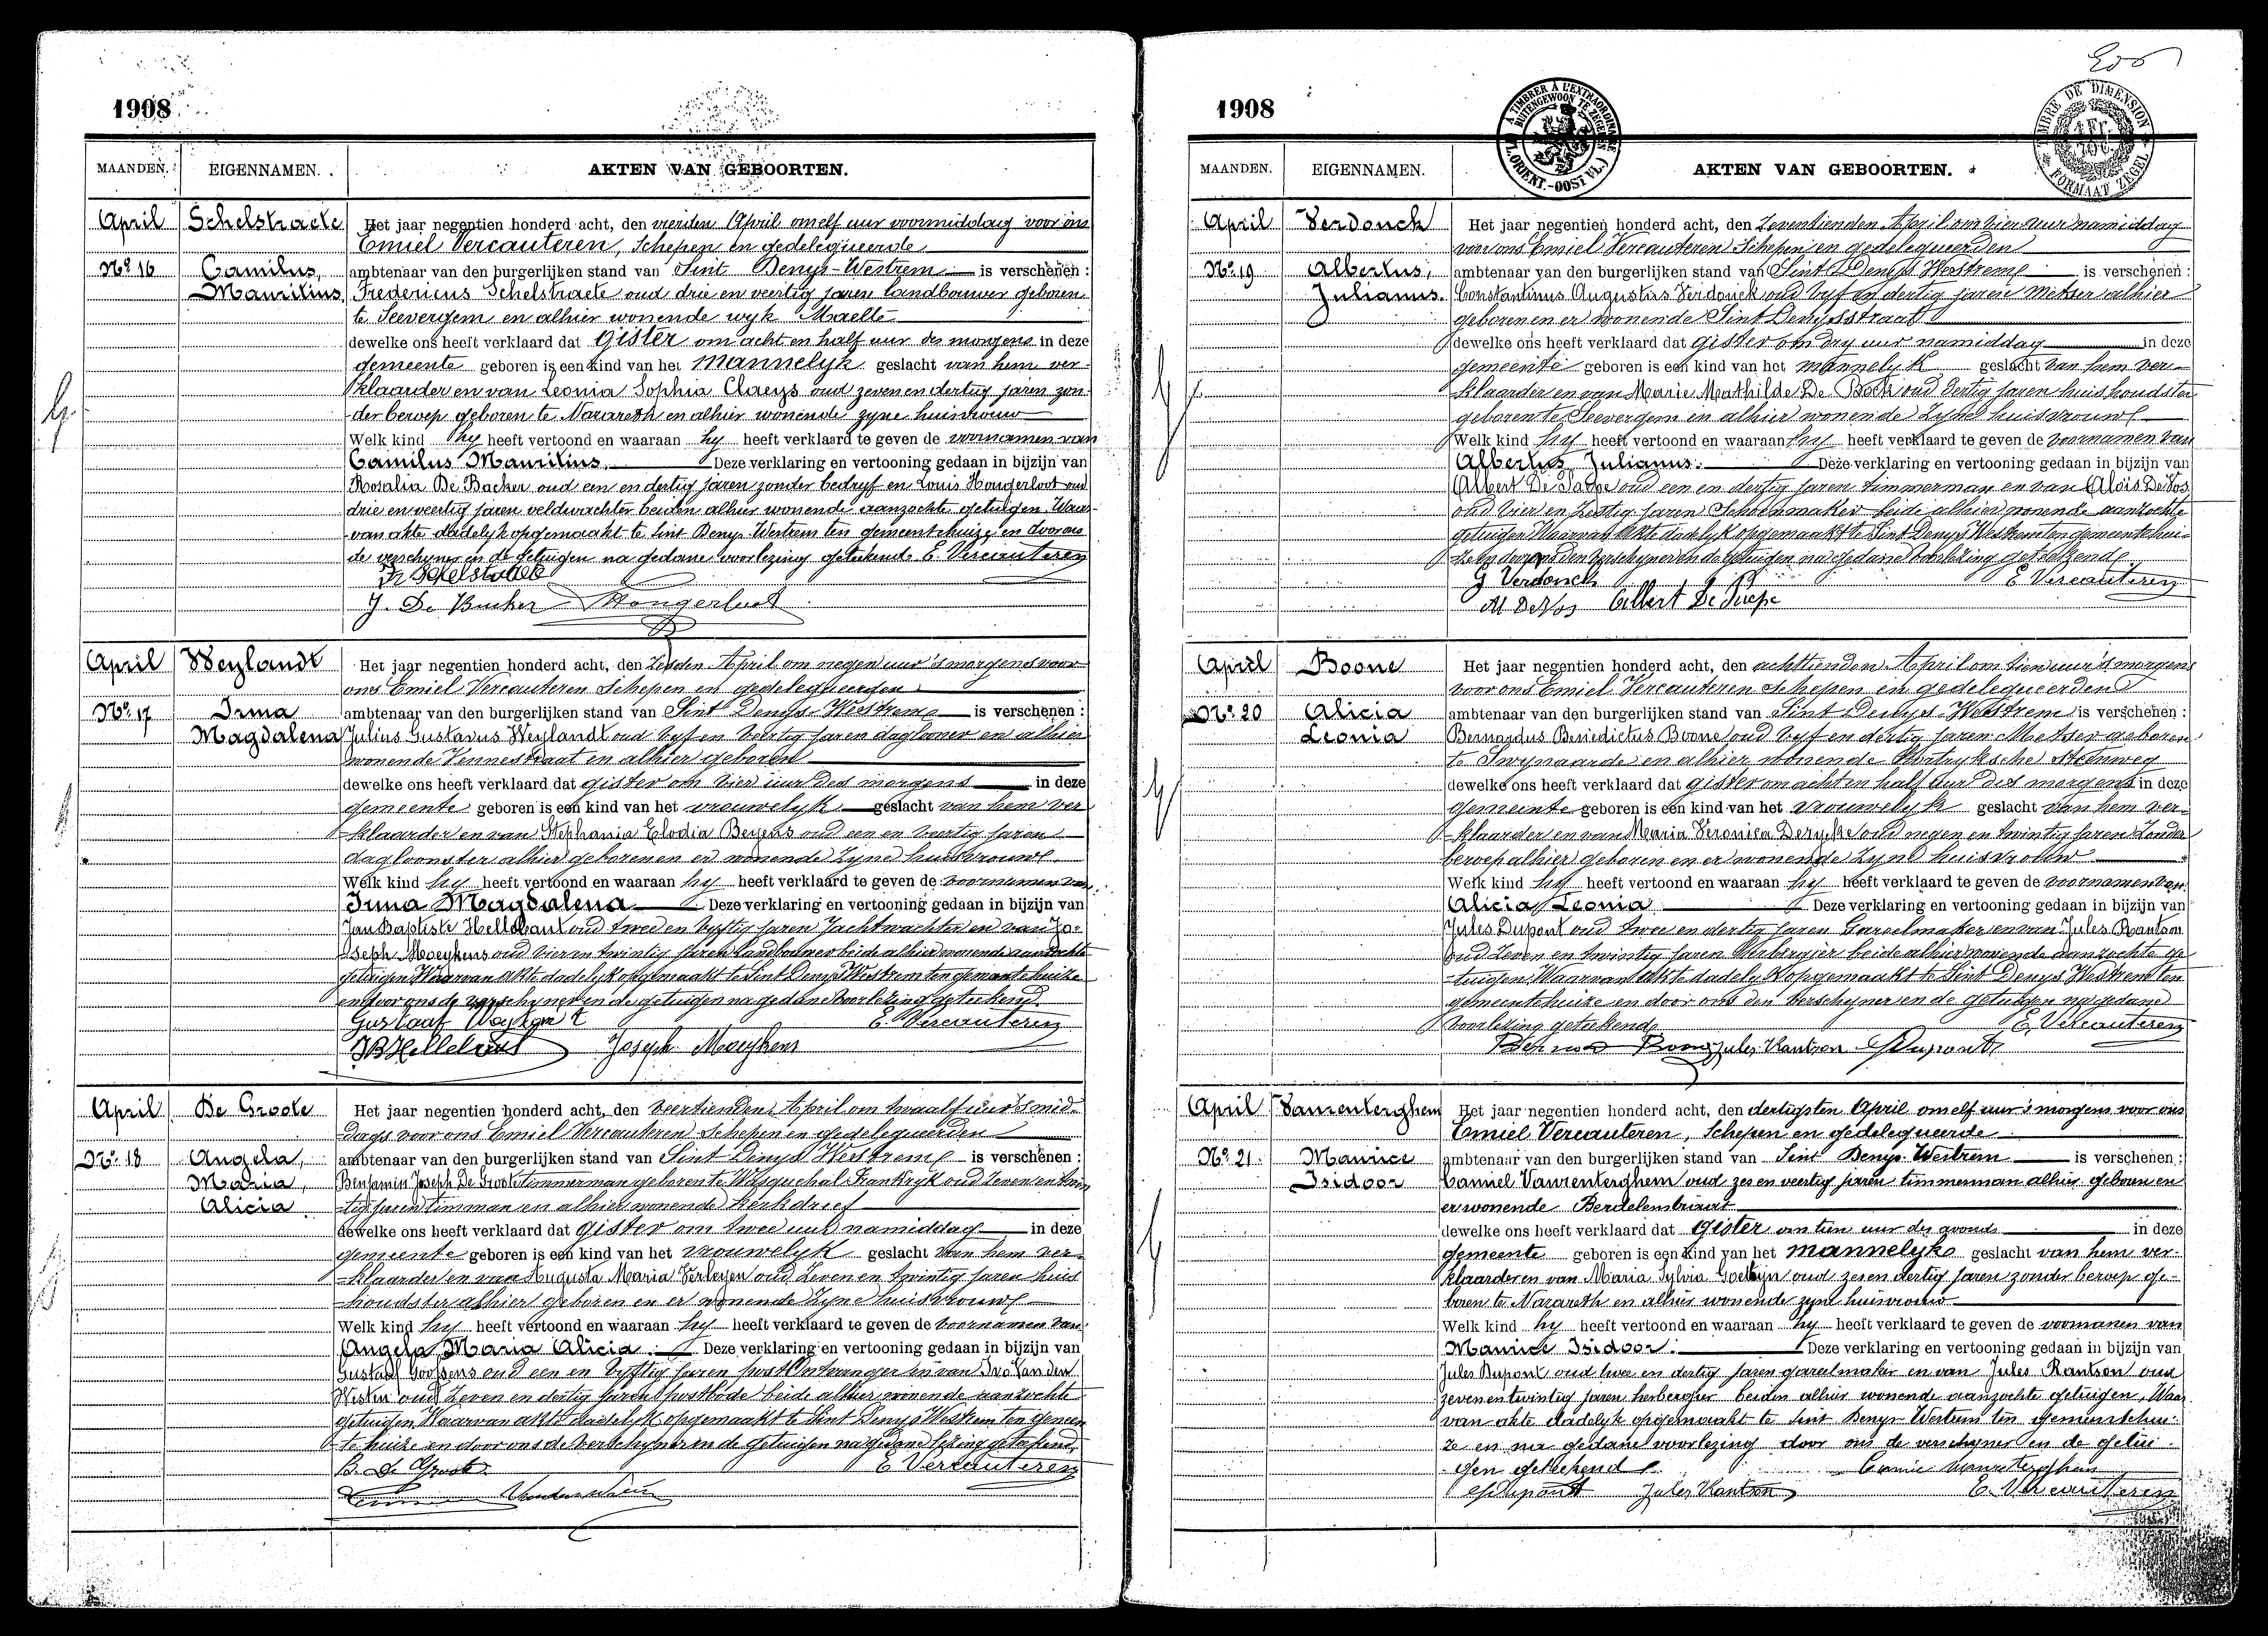 1908
MAANDEN. EIGENNAMEN. AKTEN VAN GEBOORTEN.
April Schelstraete Het jaar negentien honderd acht, den vierden April om elf uur voormiddag voor ons
Emiel Vercauteren, Schepen en gedelegueerde
No. 16 Camilus, ambtenaar van den burgerlijken stand van Sint Denys-Westrem is verschenen :
Mauritius. Fredericus Schelstraete oud drie en veertig jaren landbouwer geboren
te Seevergem en alhier wonende wyk Maelte
dewelke ons heeft verklaard dat gister om acht en half uur des morgens in deze
gemeente geboren is een kind van het mannelyk geslacht van hem ver-
klaarder en van Leonia Sophia Claeys oud zeven en dertig jaren zon-
der beroep geboren te Nazareth en alhier wonende zyne huisvrouw
Welk kind hy heeft vertoond en waaraan hy heeft verklaard te geven de voornamen van
Camilus Mauritius. Deze verklaring en vertooning gedaan in bijzijn van
Rosalia De Backer oud een en dertig jaren zonder bedryf en Louis Hongerloot oud
drie en veertig jaren veldwachter beiden alhier wonende aanzochte getuigen. Waar-
van akte dadelyk opgemaakt te Sint Denys Westrem ten gemeentehuize, en door ons
de verschyner en de getuigen na gedane voorlezing geteekend. E. Vercauteren
Fr Schelstraete
De Backer Hongerloot
April Weylandt Het jaar negentien honderd acht, den zesden April om negen uur 's morgens voor
ons Emiel Vercauteren Schepen en gedelegueerden
No. 17 Irma ambtenaar van den burgerlijken stand van Sint Denys-Westrem is verschenen :
Magdalena Julius Gustavus Weylandt oud vyf en veertig jaren daglooner en alhier
wonende Kennestraat en alhier geboren
dewelke ons heeft verklaard dat gister om vier uur des morgens in deze
gemeente geboren is een kind van het vrouwelyk geslacht van hem ver
klaarder en van Stephania Elodia Beyens oud een en veertig jaren
dagloonster alhier geboren en er wonende zyne huisvrouw
Welk kind hy heeft vertoond en waaraan hy heeft verklaard te geven de voornamen van
Irma Magdalena Deze verklaring en vertooning gedaan in bijzijn van
Jan Baptiste Hellebaut oud twee en vyftig jaren Jachtwachter en van Jo-
seph Moeykens oud vier en twintig jaren landbouwer beide alhier wonende aanzochte
getuigen Waarvan akte dadelyk opgemaakt te Sint Denys Westrem ten gemeentehuize
en door ons de verschyner en de getuigen na gedane voorlezing geteekend.
Gustaaf Weylandt E. Vercauteren
JB Hellebaut Joseph Moeykens
April De Groote Het jaar negentien honderd acht, den veertienden April om twaalf uur 's mid-
dags voor ons Emiel Vercauteren Schepen en gedelegueerden
No. 18 Angela, ambtenaar van den burgerlijken stand van Sint Denys Westrem is verschenen :
Maria, Benjamin Joseph De Groote timmerman geboren te Wasquehal Frankryk oud zeven en twin
Alicia tig jaren timman en alhier wonende Kerkdreef
dewelke ons heeft verklaard dat gister om twee uur namiddag in deze
gemeente geboren is een kind van het vrouwelyk geslacht van hem ver-
klaarder en van Augusta Maria Verleyen oud zeven en twintig jaren huis
houdster alhier geboren en er wonende zyne huisvrouw
Welk kind hy heeft vertoond en waaraan hy heeft verklaard te geven de voornamen van
Angela Maria Alicia. Deze verklaring en vertooning gedaan in bijzijn van
Gustaaf Goossens oud een en vyftig jaren postontvanger en van Ivo Van der
oud zeven en dertig jaren postbode beide alhier wonende aanzochte
getuigen Waarvan akte dadelyk opgemaakt te Sint Denys Westrem ten gemeen
te huize en door ons de verschyner en de getuigen na gedane lezing geteekend.
B. De Groote E Vercauteren
1908
MAANDEN. EIGENNAMEN. AKTEN VAN GEBOORTEN.
April Verdonck Het jaar negentien honderd acht, den zeventienden April om vier uur namiddag
voor ons Emiel Vercauteren Schepen en gedelegueerden
No. 19 Albertus, ambtenaar van den burgerlijken stand van Sint Denys Westrem is verschenen :
Julianus. Constantinus Augustus Verdonck oud vyf en dertig jaren metser alhier
geboren en er wonende Sint Denysstraat
dewelke ons heeft verklaard dat gister om dry uur namiddag in deze
gemeente geboren is een kind van het mannelyk geslacht van hem ver-
klaarder en van Marie Mathilde De Bock oud dertig jaren huishoudster
geboren te Seevergem en alhier wonende zyne huisvrouw
Welk kind hy heeft vertoond en waaraan hy heeft verklaard te geven de voornamen van
Albertus Julianus. Deze verklaring en vertooning gedaan in bijzijn van
Albert De oud een en dertig jaren timmerman en van Aloïs De Vos
oud vier en jaren Schoenmaker beide alhier wonende aanzochte
getuigen Waarvan akte dadelyk opgemaakt te Sint Denys Westrem ten gemeentehui-
ze en door ons den verschyner en de getuigen na gedane voorlezing geteekend
Verdonck E Vercauteren
Al De Vos Albert De
April Boone Het jaar negentien honderd acht, den achttienden April om tien uur 's morgens
voor ons Emiel Vercauteren schepen en gedelegueerden
No. 20 Alicia ambtenaar van den burgerlijken stand van Sint Denys-Westrem is verschenen :
Leonia Bernardus Benedictus Boone oud vyf en dertig jaren Metser geboren
te Swynaarde en alhier wonende Kortryksche steenweg
dewelke ons heeft verklaard dat gister om acht en half uur des morgens in deze
gemeente geboren is een kind van het vrouwelyk geslacht van hem ver-
klaarder en van Maria Veronica Derycke oud negen en twintig jaren zonder
beroep alhier geboren en er wonende zyne huisvrouw
Welk kind hy heeft vertoond en waaraan hy heeft verklaard te geven de voornamen van
Alicia Leonia Deze verklaring en vertooning gedaan in bijzijn van
Jules Dupont oud twee en dertig jaren Gareelmaker en van Jules Rantson
oud zeven en twintig jaren Herbergier beide alhier wonende aanzochte ge
tuigen Waarvan akte dadelyk opgemaakt te Sint Denys Westrem ten
gemeentehuize en door ons den verschyner en de getuigen na gedane
voorlezing geteekend E. Vercauteren
Boone Jules Rantson Dupont
April Vanrenterghem Het jaar negentien honderd acht, den dertigsten April om elf uur 's morgens voor ons
Emiel Vercauteren, Schepen en gedelegueerde
No. 21. Maurice ambtenaar van den burgerlijken stand van Sint Denys-Westrem is verschenen :
Isidoor Camiel Vanrenterghem oud zes en veertig jaren timmerman alhier geboren en
er wonende Berdelenstraat
dewelke ons heeft verklaard dat gister om tien uur des avonds in deze
gemeente geboren is een kind van het mannelyk geslacht van hem ver-
klaarder en van Maria Sylvia Goetyn oud zes en dertig jaren zonder beroep ge-
boren te Nazareth en alhier wonende zyne huisvrouw
Welk kind hy heeft vertoond en waaraan hy heeft verklaard te geven de voornamen van
Maurice Isidoor. Deze verklaring en vertooning gedaan in bijzijn van
Jules Dupont oud twee en dertig jaren gareelmaker en van Jules Rantson oud
zeven en twintig jaren herbergier beiden alhier wonende aanzochte getuigen, Waar-
van akte dadelyk opgemaakt te Sint Denys-Westrem ten gemeentehui-
ze en na gedane voorlezing door ons de verschyner en de getui-
gen geteekend. Camiel Vanrenterghem
Dupont Jules Rantson E. Vercauteren